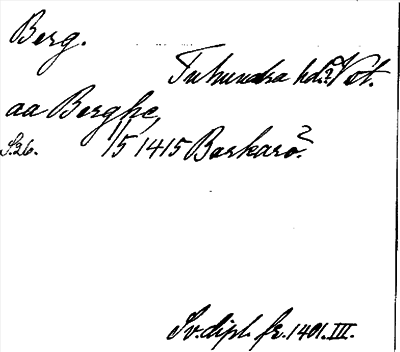 Berg.
Tuhundra hd.? Vst.
aa Berghe
S.26. 1/5 1415 Barkarö?
Sv. dipl. fr. 1401. III.